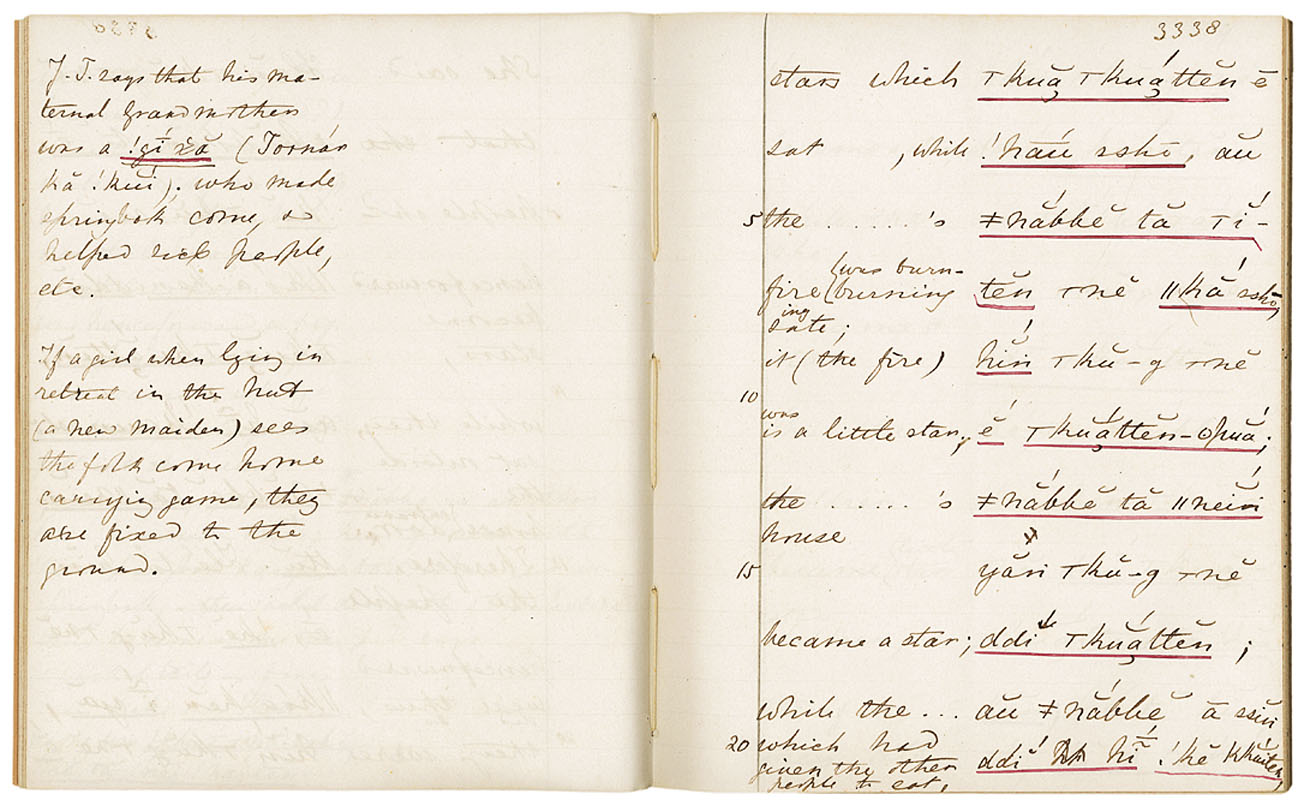 J. T. says that his ma-
ternal grandmother
was a !gí xă (Tornár
kă !kuí). who made
springbok come, &
helped sick people,
etc.
If a girl when lying in
retreat in the hut
(a new maiden) sees
the folk come home
carrying game, they
are fixed to the
ground.
3338
stars which ⊤kuą̆ ⊤kuą́ttĕn ē
sat , while !hăú sshō, au
5 the . . . . . . 's ≠năbbĕ tă ⊤ĭ-
(was burn-
fire (burning tĕn ⊤nĕ ǁkă sshō,
ing
sate;
it (the fire) hĭń ⊤kŭ-g ⊤nĕ
10
was
is a little star, é ⊤kuą́ttĕn-ʘpuá;
the . . . . . . 's ≠nắbbĕ tă ǁneiń
house
15 yăń ⊤kŭ-g ⊤nĕ
became a star; ddĭ ⊤kuą́ttĕn ;
while the ... au ≠nắbbĕ ā ssĭń
20 which had ddĭ hĭ !kĕ kkuitĕn,
given the other
people to eat,